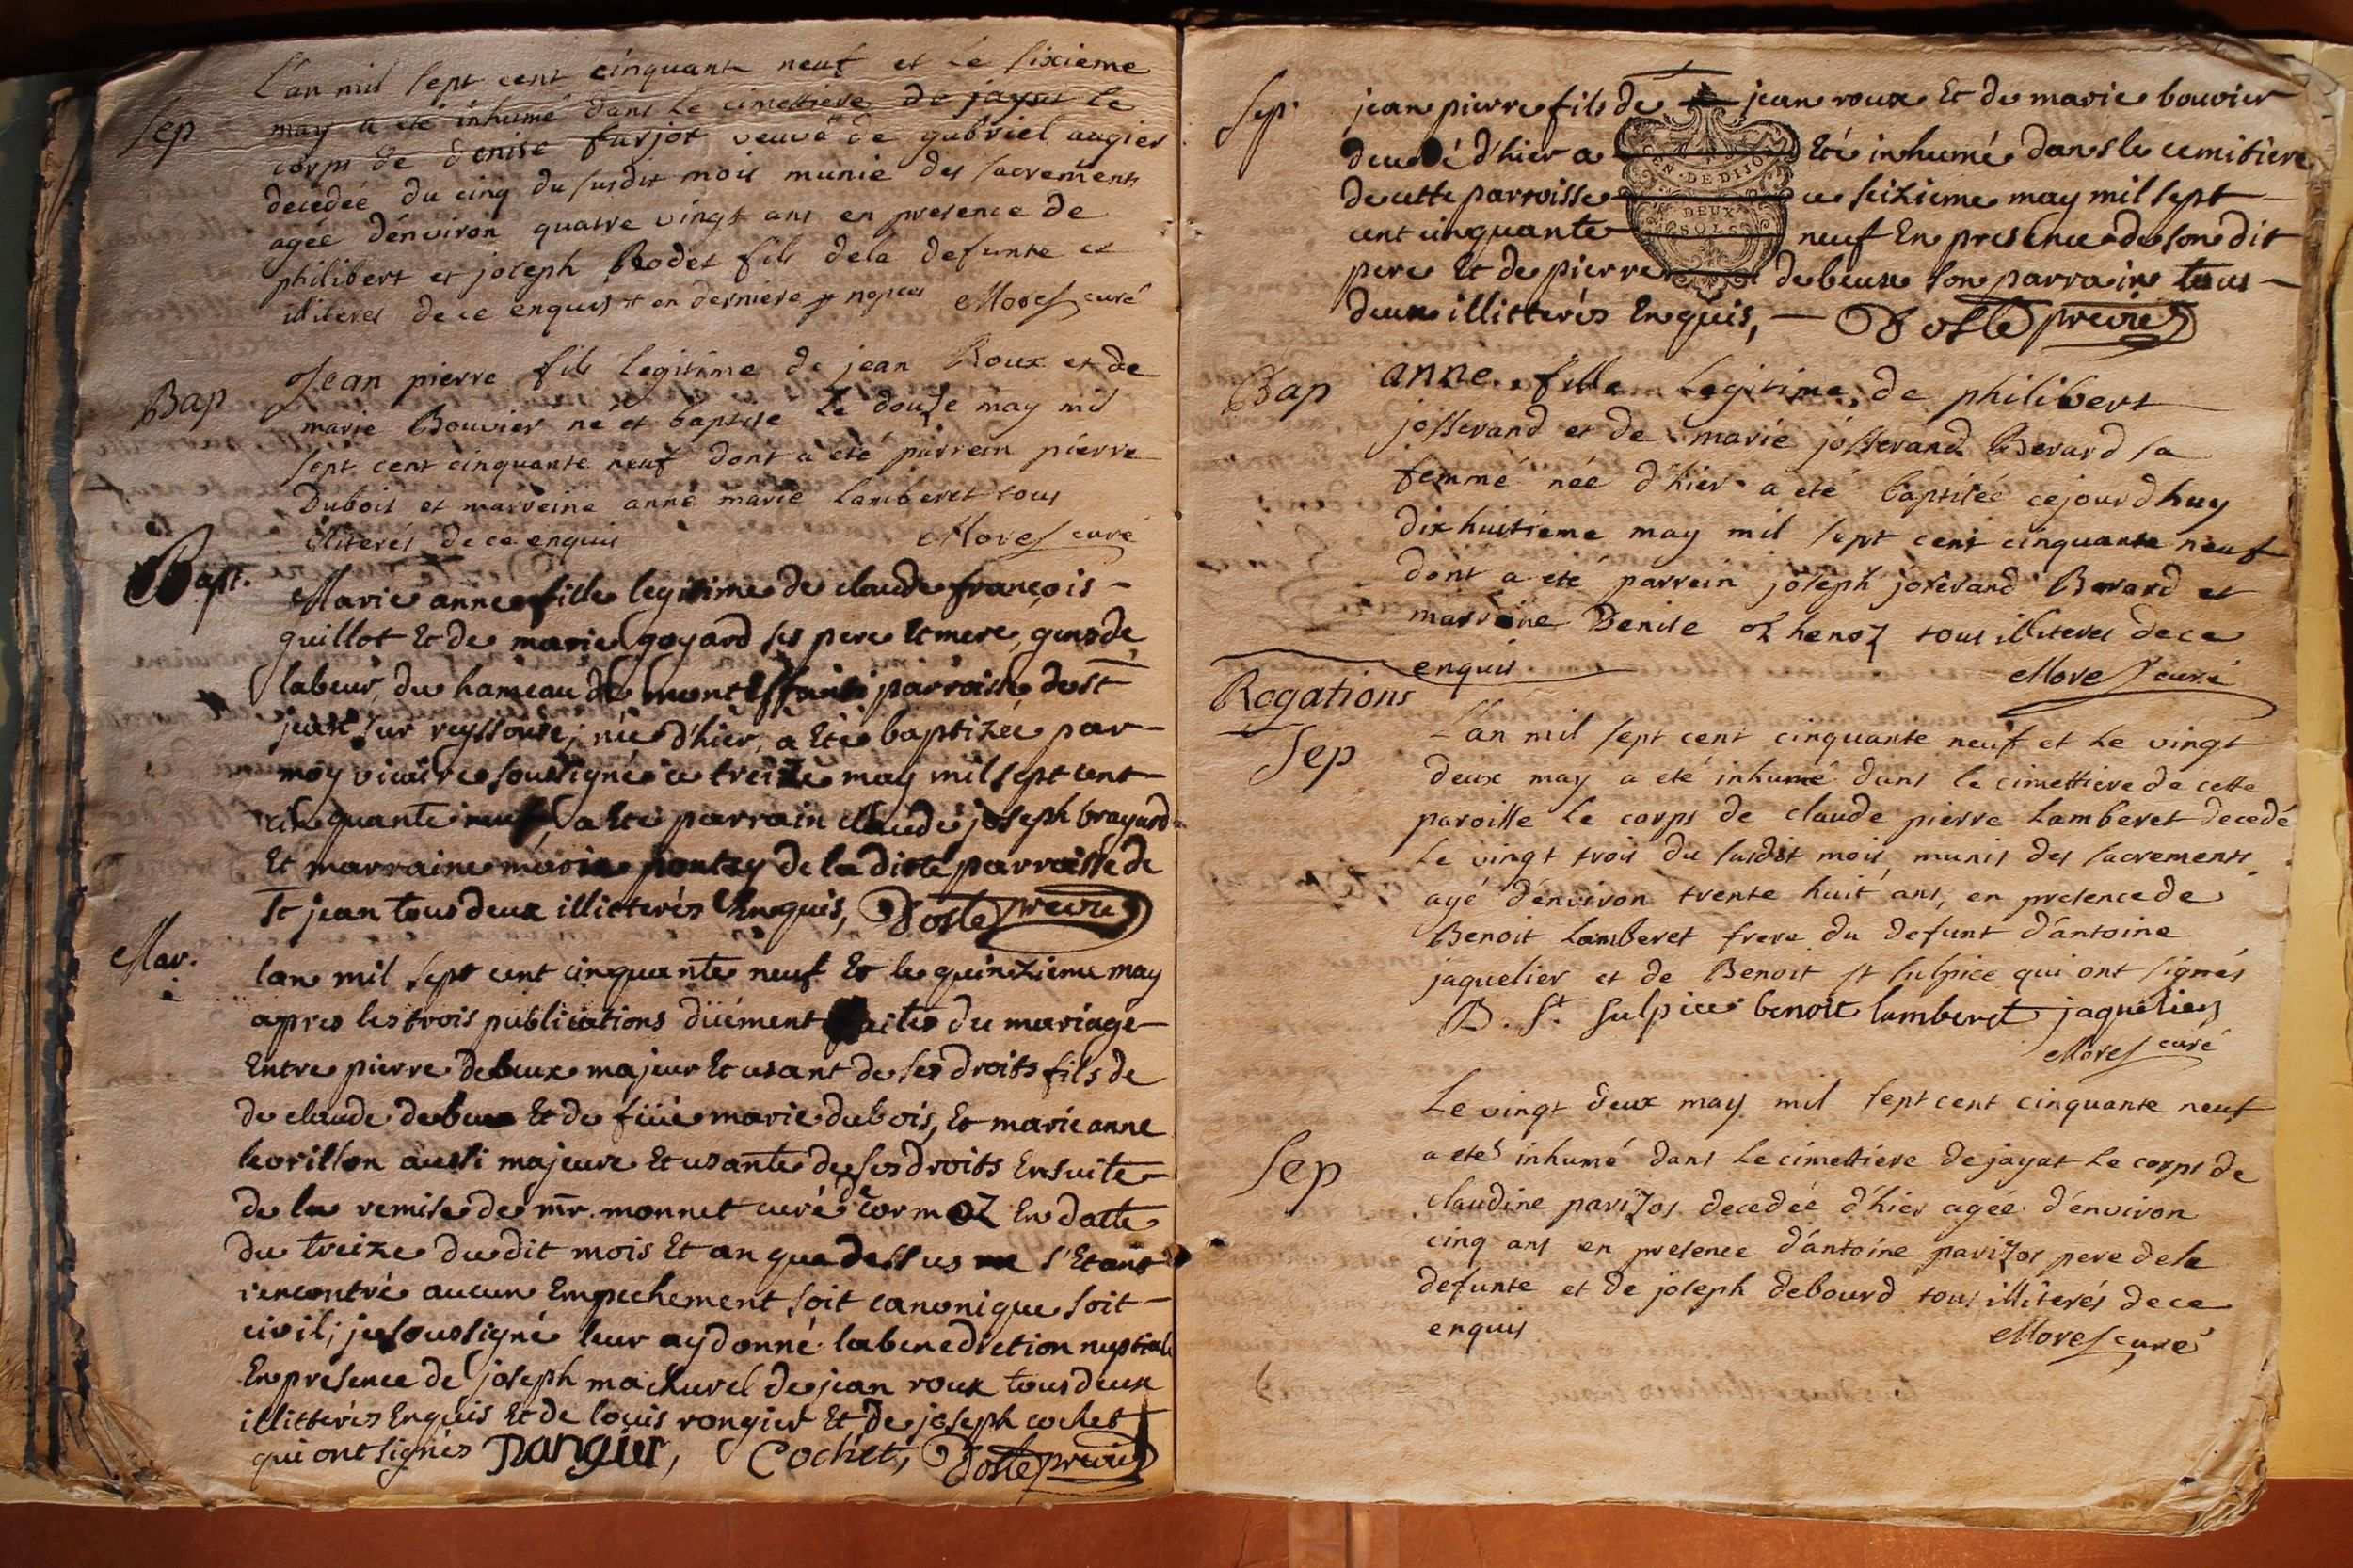 L'an mil sept cent cinquante neuf et le sixieme
Sep
may a eté inhumé dans le cimettiere de jayat le
corps de denise farjot veuve de gabriel augier
decedée du cinq du susdit mois munie des sacrements
agée d'énviron quatre vingt ans en presence de
philibert et joseph Rodet fils dela defunte et
illiteres de ce enquis en derniere nopces Morel curé
Bap
Jean pierre fils legitime de jean Roux et de
marie Bouvier né et baptisé le douze may mil
sept cent cinquante neuf dont a eté parrein pierre
Dubois et marreine anne marie Lamberet tous
illiterés de ce enquis Morel curé
Bapt.
Marie anne fille legitime de claude françois
guillot Et de marie goyard ses pere Et mere, gens de
labeur, du hameau de parroisse de st
jean sur reyssouse, née d'hier, a Eté baptizée par
moy vicaire soussigné ce treize may mil sept cent
cinquante neuf, a Eté parrain claude joseph brayard
Et marraine marie pontey de la dite parroisse de
St jean tous deux illitterés Enquis, Dosle prevre
Mar.
lan mil sept cent cinquante neuf Et le quinzieme may
apres les trois publications düement faites du mariage
Entre pierre debeux majeur Et usant de ses droits fils de
de claude debeux Et de füe marie dubois, Et marie anne
levrillon aussi majeure Et usante de ses droits Ensuite
de la remise de mr. monnet curé de cormoz En datte
du treize du dit mois Et an que dessus ne s'Etant
rencontré aucun Empechement soit canonique soit
civil; je soussigné leur ay donné la benediction nuptiale
En presence de joseph machurel de jean roux tous deux
illitterés Enquis Et de loüis rongier Et de joseph cochet
qui ont signés Rangier, Cochet, Dosle prevre
Sep.
jean pierre fils de jean roux Et de marie bouvier
decedé d'hier a Eté inhumé dans le cemitiere
de cette parroisse ce seizieme may mil sept
cent cinquante neuf En presence de son dit
pere Et de pierre debeux son parrain tous
deux illitterés Enquis, Dosle prevre
GEN. DE DIJON
DEUX
SOLS
Bap
anne fille legitime de philibert
josserand et de marie josserand Berard sa
femme née d'hier a eté baptisée cejourdhuy
dix huitieme may mil sept cent cinquante neuf
dont a eté parrein joseph joserand Berard et
marreine Denise tous illiteres de ce
enquis Morel curé
Rogations
Sep
L'an mil sept cent cinquante neuf et le vingt
deux may a eté inhumé dans le cimettiere de cette
paroisse le corps de claude pierre Lamberet decedé
le vingt trois du susdit mois munis des sacrements
agé d'énviron trente huit ans, en presence de
Benoit Lamberet frere du defunt d'antoine
jaquelier et de Benoit st sulpice qui ont signés
B. St. Sulpice benoit lamberet jaquelier
Morel curé
Le vingt deux may mil sept cent cinquante neuf
Sep
a eté inhumé dans le cimettiere de jayat le corps de
claudine parizos decedée d'hier agée d'énviron
cinq ans en presence d'antoine parizos pere de la
defunte et de joseph debourd tous illiterés de ce
enquis Morel curé